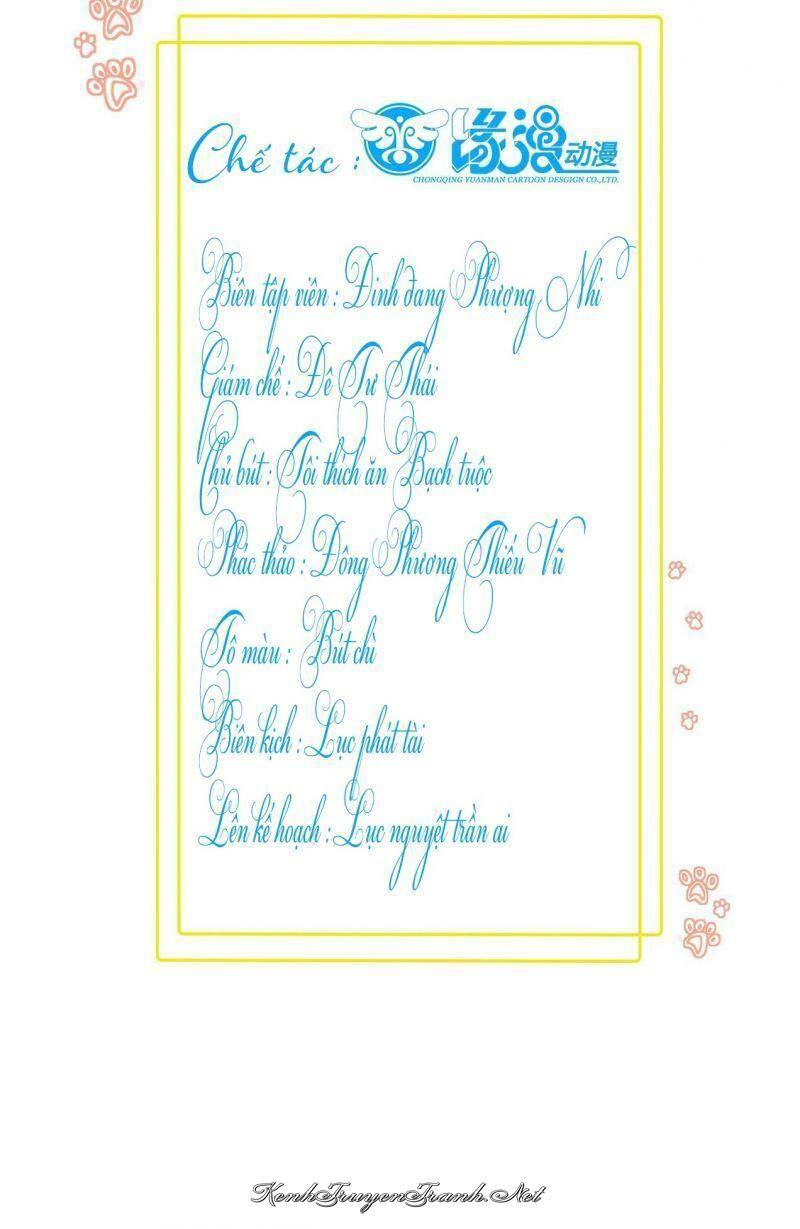 Chế tác : 缘漫动漫
CHONGQING YUANMAN CARTOON DESGIGN CO.,LTD.
Biên tập viên : Đinh đang Phượng Nhi
Giám chế : Đê Tư Thái
Chủ bút : Tôi thích ăn Bạch tuộc
Phác thảo : Đông Phương Thiếu Vũ
Tô màu : Bút chì
Biên kịch : Lục phát tài
Lên kế hoạch : Lục nguyệt trần ai
KenhTruyenTranh.Net